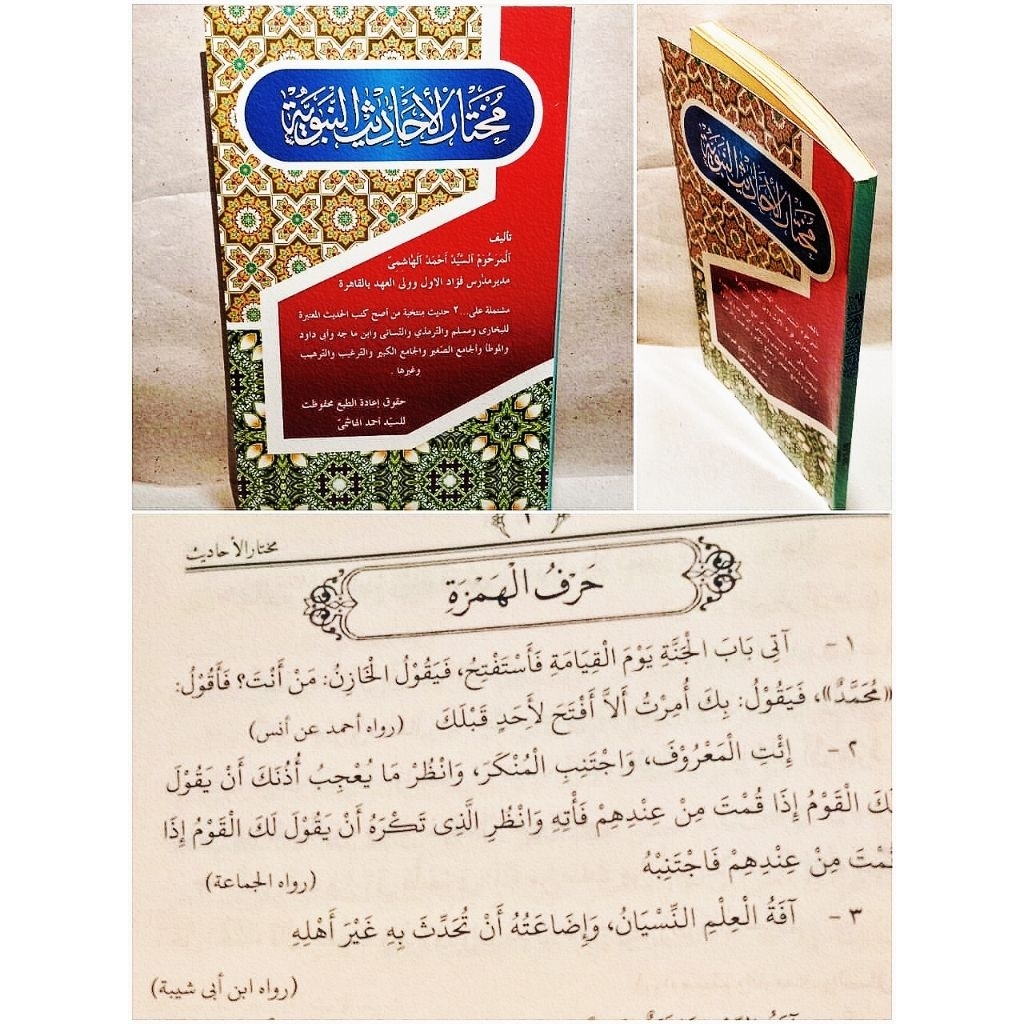 مُخْتَارُ الْأَحَادِيثِ النَّبَوِيَّةِ
تأليف
اَلْمَرْحُوْمُ اَلسَّيِّدْ اَحْمَدْ اَلْهَاشِمِى
مدير مدارس فؤاد الاول وولى العهد بالقاهرة
مشتملة على ٢٠٠٠ حديث منتخبة من أصح كتب الحديث المعتبرة
للبخارى ومسلم والترمذي والنسائى وابن ماجه وأبى داود
والموطأ والجامع الصغير والجامع الكبير والترغيب والترهيب
وغيرها .
حقوق إعادة الطبع محفوظت
للسيّد أحمد الهاشمىّ
مُخْتَارُ الْأَحَادِيثِ النَّبَوِيَّةِ
مختار الأحاديث
حَرْفُ الْهَمْزَةِ
١ - آتِى بَابَ الْجَنَّةِ يَوْمَ الْقِيَامَةِ فَأَسْتَفْتِحُ، فَيَقُوْلُ الْخَازِنُ: مَنْ أَنْتَ؟ فَأَقُوْلُ:
«مُحَمَّدٌ»، فَيَقُوْلُ: بِكَ أُمِرْتُ أَلاَّ أَفْتَحَ لِأَحَدٍ قَبْلَكَ (رواه أحمد عن أنس)
٢ - إِئْتِ الْمَعْرُوْفَ، وَاجْتَنِبِ الْمُنْكَرَ، وَانْظُرْ مَا يُعْجِبُ أُذُنَكَ أَنْ يَقُوْلَ
لَكَ الْقَوْمُ إِذَا قُمْتَ مِنْ عِنْدِهِمْ فَأْتِهِ وَانْظُرِ الَّذِى تَكْرَهُ أَنْ يَقُوْلَ لَكَ الْقَوْمُ إِذَا
قُمْتَ مِنْ عِنْدِهِمْ فَاجْتَنِبْهُ (رواه الجماعة)
٣ - آفَةُ الْعِلْمِ النِّسْيَانُ، وَإِضَاعَتُهُ أَنْ تُحَدِّثَ بِهِ غَيْرَ أَهْلِهِ
(رواه ابن أبى شيبة)